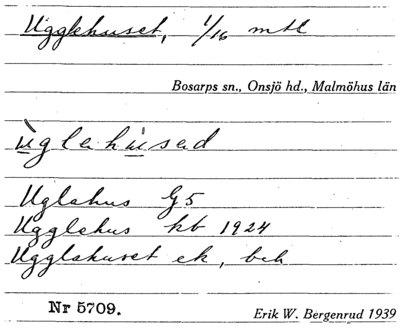 Ugglehuset, 1/16 mtl
Bosarps sn., Onsjö hd., Malmöhus län
ùglahúsad
Uglahus G5
Ugglehus kb 1924
Ugglahuset ek, beb
Nr 5709.
Erik W. Bergenrud 1939